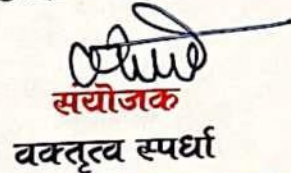 संयोजक
वक्तृत्व स्पर्धा